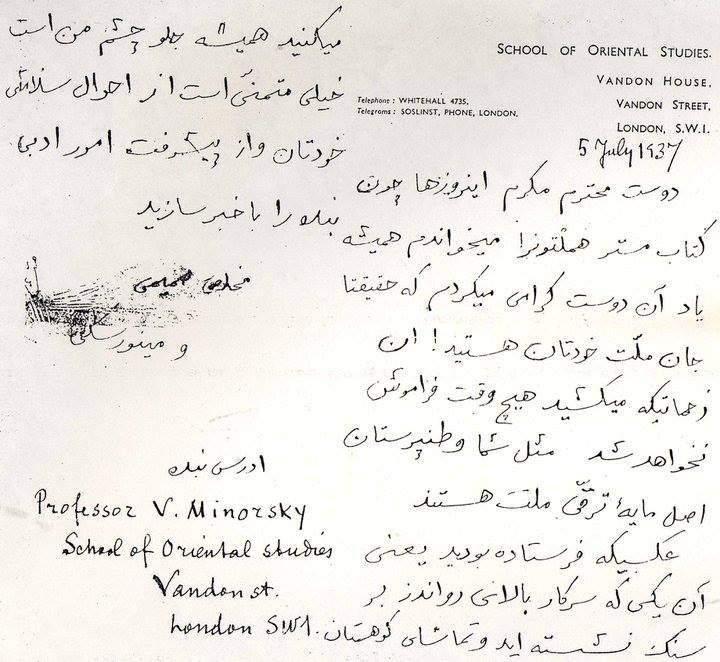 SCHOOL OF ORIENTAL STUDIES.
VANDON HOUSE,
VANDON STREET,
LONDON, S.W.1.
Telephone : WHITEHALL 4735.
Telegrams : SOSLINST, PHONE, LONDON.
5 July 1937
دوست محترم مکرم اینروزها چون
کتاب مستر هملتونرا میخواندم همیشه
یاد آن دوست گرامی میکردم که حقیقتا
جان ملّت خودتان هستید! ان
زحماتیکه میکشید هیچ وقت فراموش
نخواهد شد مثل شما وطنپرستان
اصل مایهٔ ترقّی ملت هستند
عکسیکه فرستاده بودید یعنی
آن یکی که سرکار بالای رواندز بر
سنگ نشسته اید و تماشای کوهستان
میکنید همیشه جلو چشم من است
خیلی متمنّی است از احوال سلامتی
خودتان و از پیشرفت امور ادبی
بنده را با خبر سازید
مخلص صمیمی
و مینورسکی
ادرس بنده
Professor V. Minorsky
School of Oriental studies
Vandon st.
London SW1.